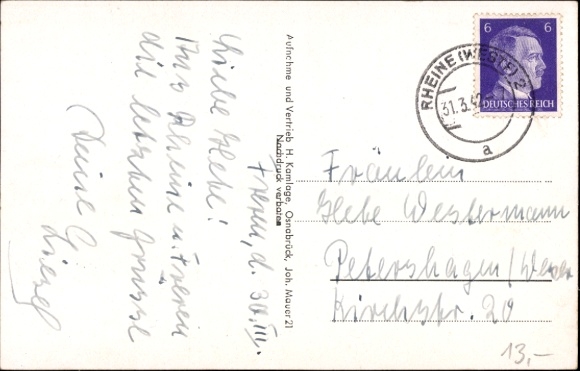 Freren, d. 30. III.
Liebe Hebe!
Aus Rheine u. Freren
die letzten Grüsse
Deine
Liesel
Aufnahme und Vertrieb H. Kamlage, Osnabrück, Joh. Mauer 21
Nachdruck verboten
6 6
DEUTSCHES REICH
RHEINE (WESTF) 2
31.3.42
a
Fräulein
Hebe Westermann
Petershagen/Weser
Kirchstr. 20
13,-